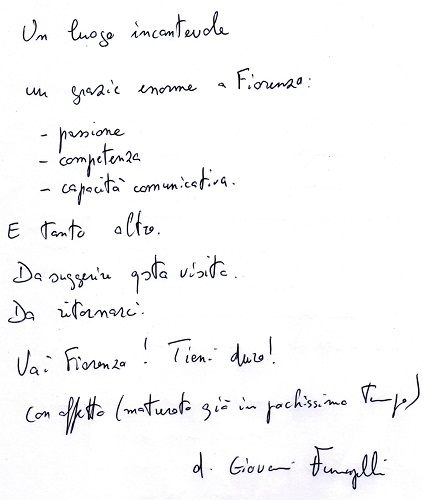 Un luogo incantevole
un grazie enorme a Fiorenza:
- passione
- competenza
- capacità comunicativa.
E tanto altro.
Da suggerire qsta visita.
Da ritornarci.
Vai Fiorenza! Tieni duro!
Con affetto (maturato già in pochissimo tempo)
d. Giovanni Fumagalli